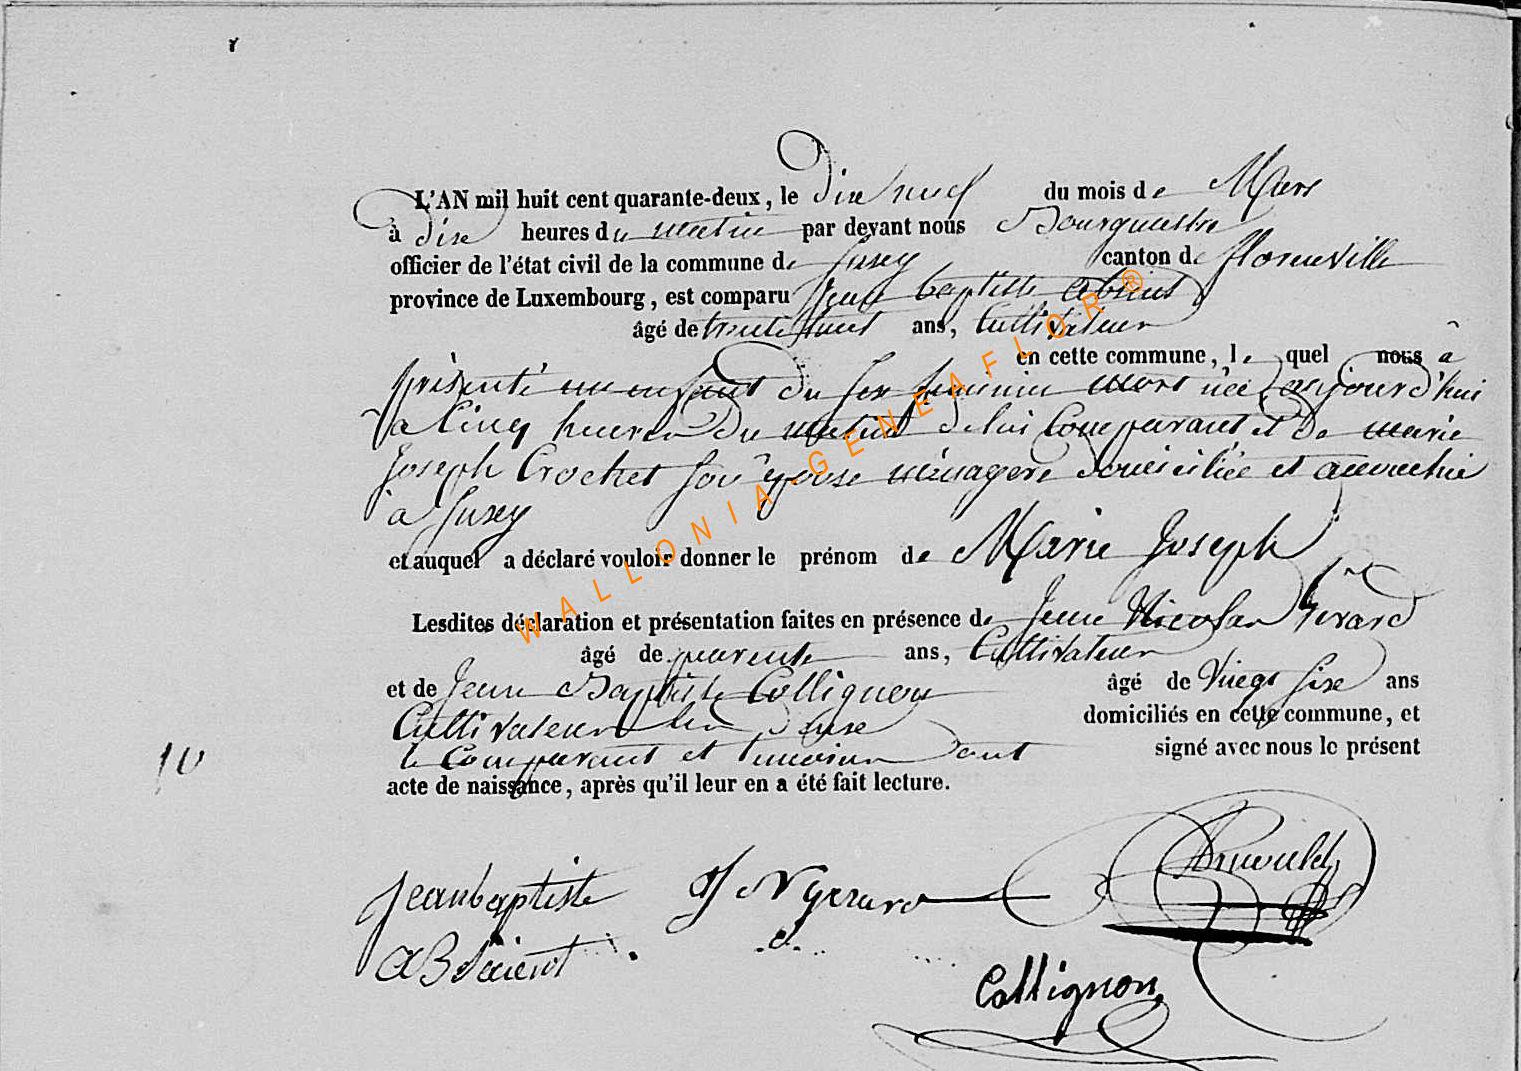 L'AN mil huit cent quarante-deux, le dixneuf du mois de Mars
à dixe heures du matin par devant nous Bourguestre
officier de l'état civil de la commune de Jusey canton de florenville
province de Luxembourg, est comparu Jean baptiste
âgé de ans, Cultivateur
en cette commune, le quel nous à
présenté un enfant du sex feminin mort née aujourd'hui
a Cinq heures du matin de lui Comparant et de marie
Joseph Crochet son épouse ménagere domiciliée et
à Jusey
et auquel a déclaré vouloir donner le prénom de Marie Joseph
Lesdites déclaration et présentation faites en présence de Jean Nicolas Gérard
âgé de quarente ans, Cultivateur
et de Jean Baptiste Collignon âgé de Vingt sixe ans
Cultivateur domiciliés en cette commune, et
le Comparant et temoins ont signé avec nous le présent
acte de naissance, après qu'il leur en a été fait lecture.
10
Jean baptiste J N gerard
Collignon
WALLONIA-GENEAFLOR ®